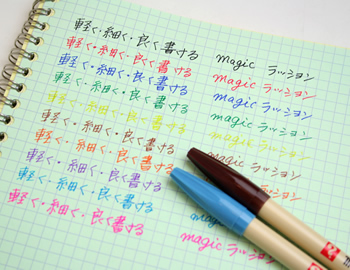 軽く・細く・良く書ける magic ラッション
軽く・細く・良く書ける magic ラッション
軽く・細く・良く書ける magic ラッション
軽く・細く・良く書ける magic ラッション
軽く・細く・良く書ける magic ラッション
軽く・細く・良く書ける magic ラッション
軽く・細く・良く書ける magic ラッション
軽く・細く・良く書ける ラッション
軽く・細く・良く書ける magic ラッション
軽く・細く・良く書ける magic ラッション